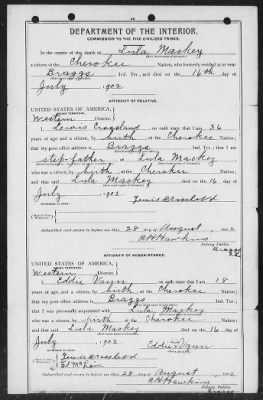 DEPARTMENT OF THE INTERIOR.
COMMISSION TO THE FIVE CIVILIZED TRIBES.
In the matter of the death of Lula Mackey
a citizen of the Cherokee Nation, who formerly resided at or near
Braggs, Ind. Ter., and died on the 16th day of
July, 1902
AFFIDAVIT OF RELATIVE.
UNITED STATES OF AMERICA,
INDIAN TERRITORY,
Western District.
I, Lewis, on oath state that I am 36
years of age and a citizen, by birth, of the Cherokee Nation;
that my post office address is Braggs, Ind. Ter.; that I am
step-father of Lula Mackey
who was a citizen, by birth, of the Cherokee Nation;
and that said Lula Mackey died on the 16 day of
July, 1902
Subscribed and sworn to before me this 28 day of August, 1902
Hawkins
Notary Public.
Braggs
AFFIDAVIT OF ACQUAINTANCE.
UNITED STATES OF AMERICA,
INDIAN TERRITORY,
Western District.
I, Eddie Vann, on oath state that I am 18
years of age, and a citizen by birth of the Cherokee Nation;
that my post office address is Braggs, Ind. Ter.;
that I was personally acquainted with Lula Mackey
who was a citizen, by birth, of the Cherokee Nation;
and that said Lula Mackey died on the 16 day of
July, 1902
Eddie Vann
his
mark
Subscribed and sworn to before me this 28 day of August, 1902
Hawkins
Notary Public.
Braggs